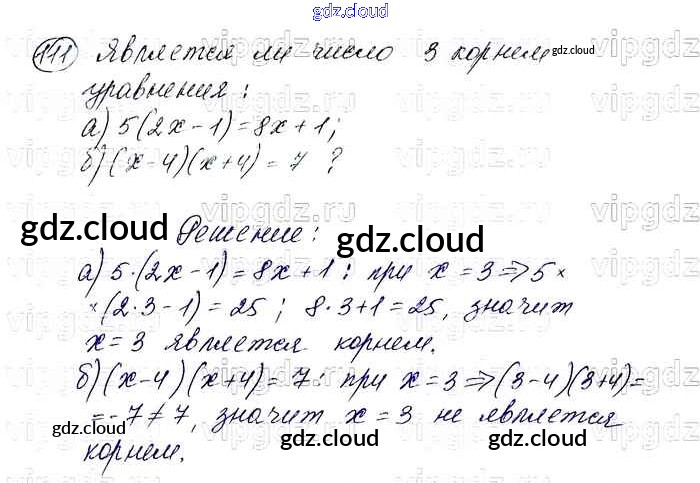 gdz.cloud
111 Является ли число 3 корнем gdz.cloud
уравнения:
а) 5(2x-1)=8x+1;
б) (x-4)(x+4)=7 ?
gdz.cloud Решение: gdz.cloud
а) 5·(2x-1)=8x+1: при x=3=>5×
×(2·3-1)=25; 8·3+1=25, значит
x=3 является корнем.
б) (x-4)(x+4)=7. при x=3=>(3-4)(3+4)=
=-7≠7, значит x=3 не является
gdz.cloud gdz.cloud gdz.cloud
корнем.
vipgdz.ru